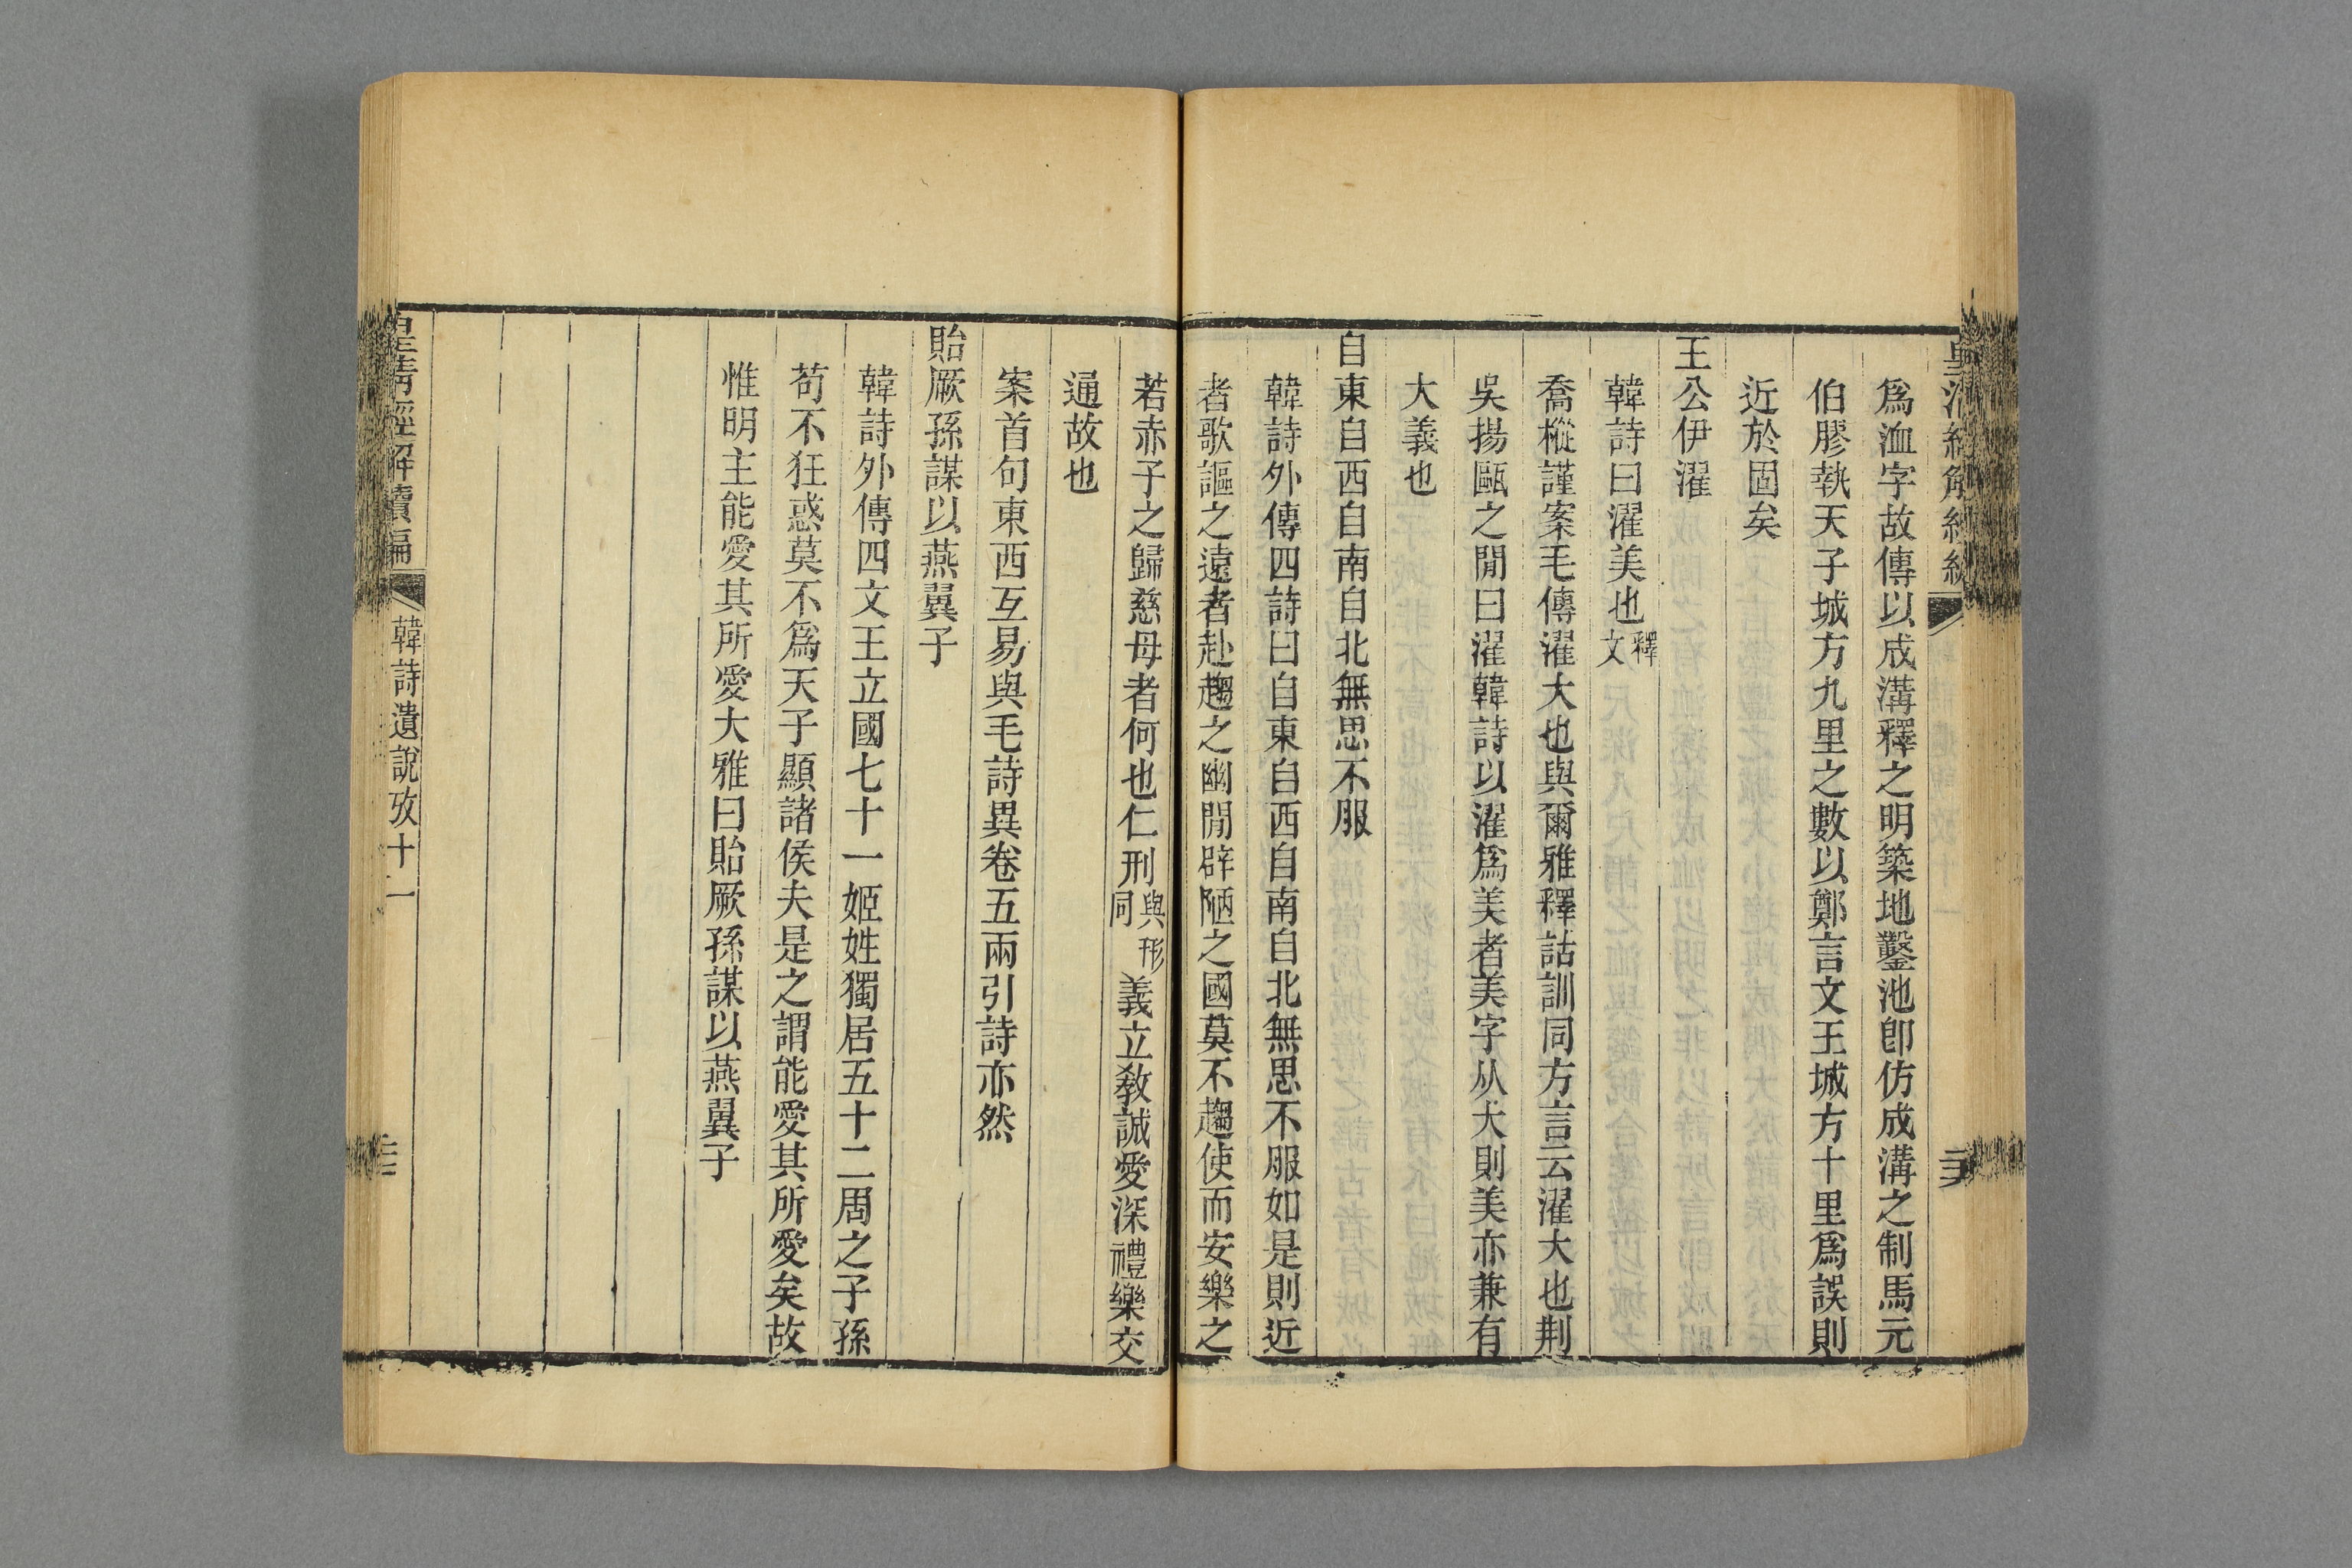 爲洫字故傳以成溝釋之明築地鑿池卽仿成溝之制馬元
伯膠執天子城方九里之數以鄭言文王城方十里爲誤則
近於固矣
王公伊濯
韓詩曰濯美也釋文
喬樅謹案毛傳濯大也與爾雅釋詁訓同方言云濯大也荆
吳揚甌之閒曰濯韓詩以濯爲美者美字从大則美亦兼有
大義也
自東自西自南自北無思不服
韓詩外傳四詩曰自東自西自南自北無思不服如是則近
者歌謳之遠者赴趨之幽閒辟陋之國莫不趨使而安樂之
若赤子之歸慈母者何也仁刑與形同義立敎誠愛深禮樂交
通故也
案首句東西互易與毛詩異卷五兩引詩亦然
貽厥孫謀以燕翼子
韓詩外傳四文王立國七十一姬姓獨居五十二周之子孫
苟不狂惑莫不爲天子顯諸侯夫是之謂能愛其所愛矣故
惟明主能愛其所愛大雅曰貽厥孫謀以燕翼子
皇清經解續編
韓詩遺說攷十一